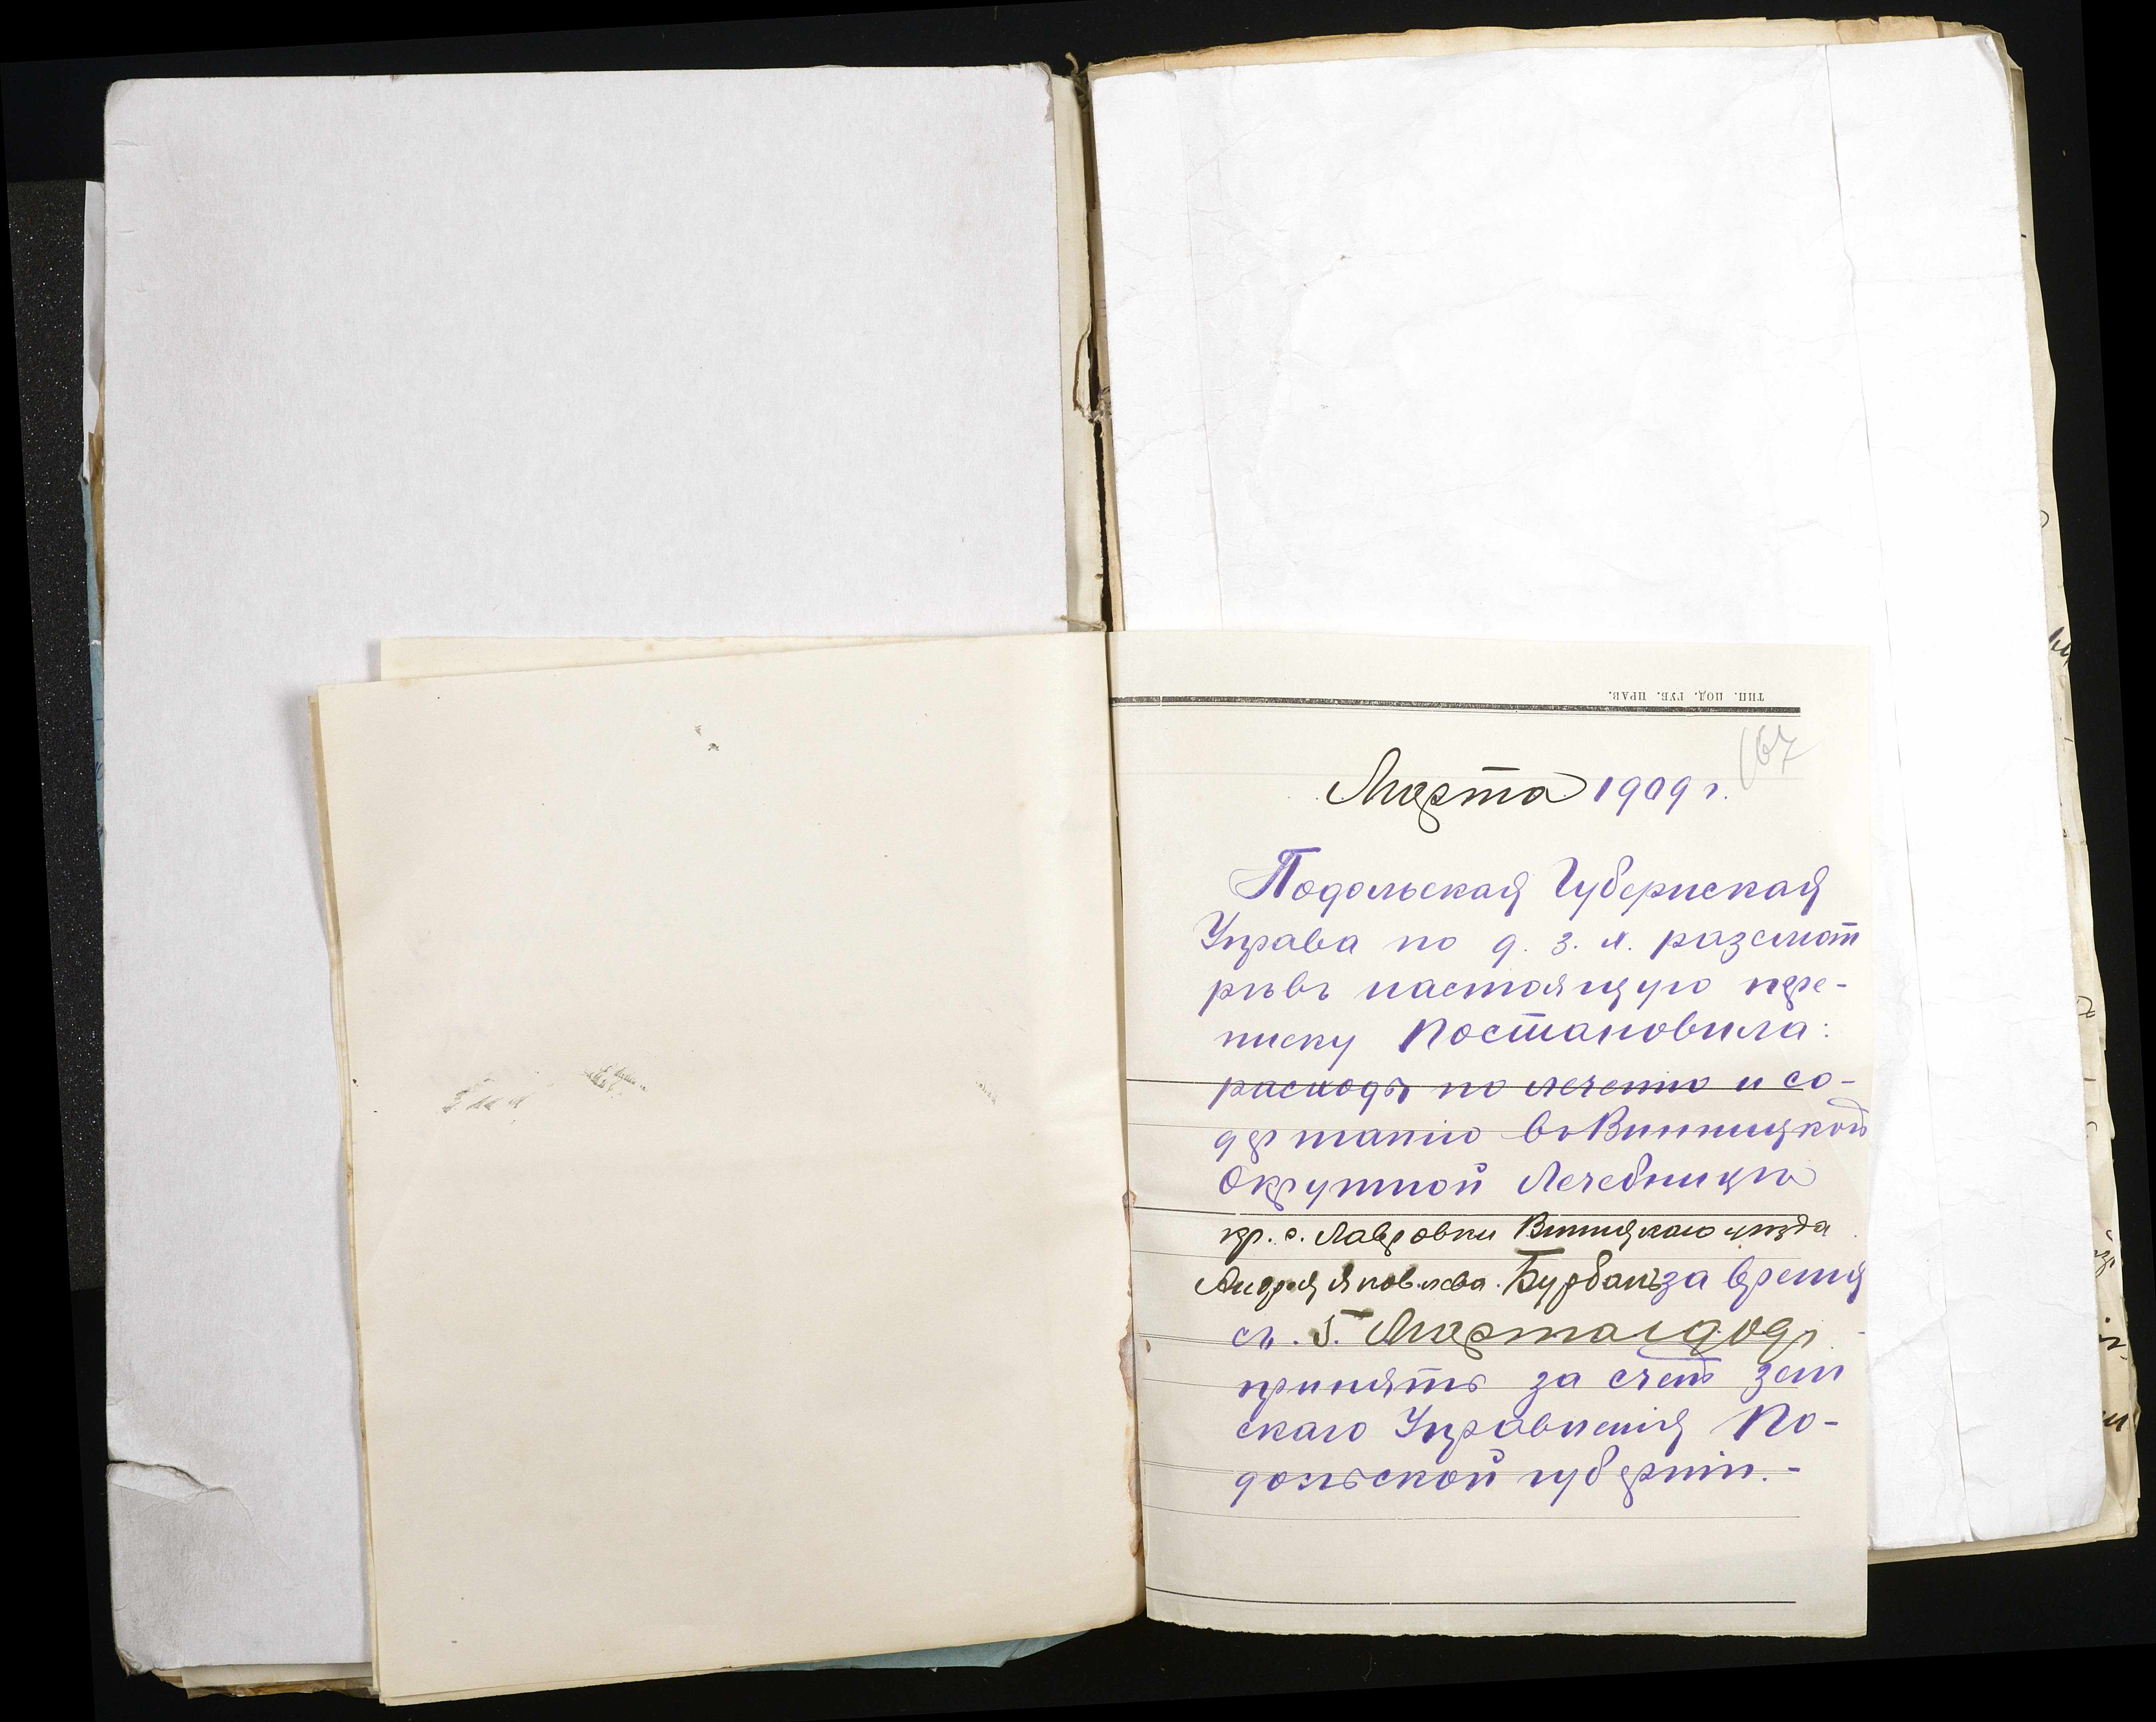 ТИП. ПОД. ГУБ. ПРАВ.
167
Марта 1909 г.
Подольская Губернская
Управа по д. з. х. разсмот
рѣвъ настоящую пере-
писку Постановила:
расходъ по леченію и со-
держанію въ Винницкой
Окружной Лечебницѣ
кр. с. Лавровки Винницкаго уѣзда
Андрея Яковлева Бурбакъ за время
съ 5 Марта 1909 г.
принять за счетъ зем
скаго Управленія По-
дольской губерніи.-